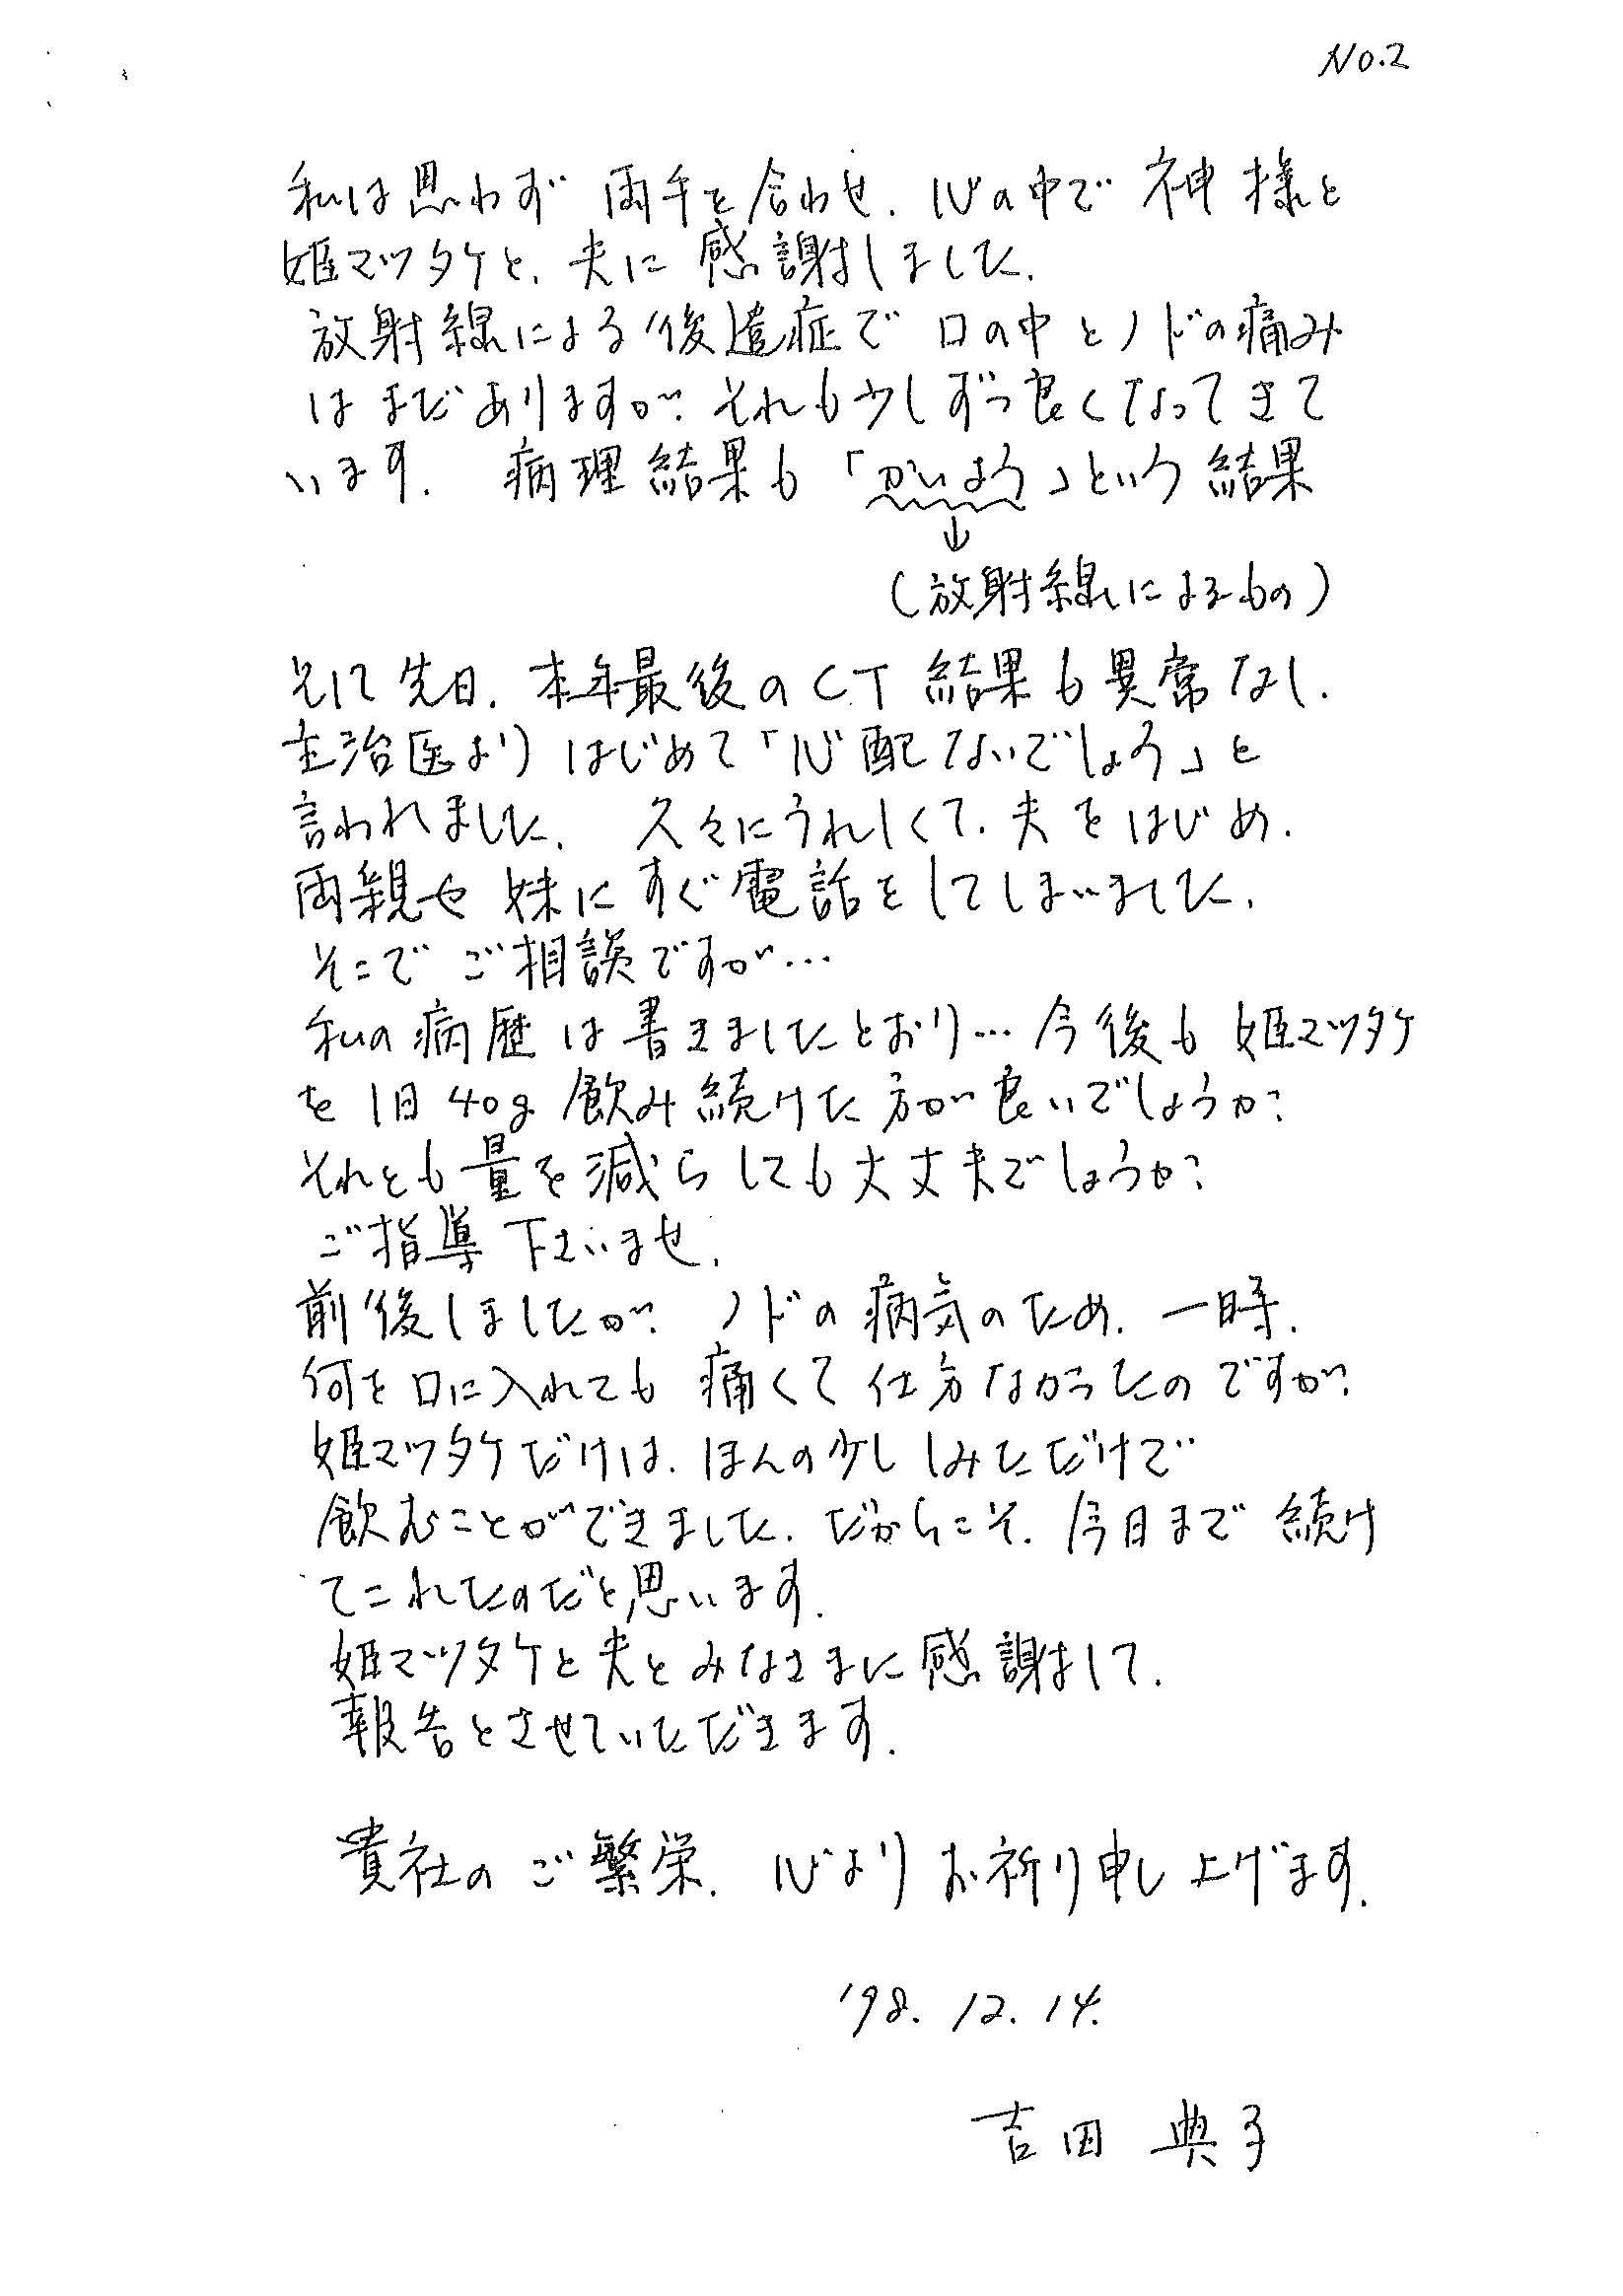 No.2
私は思わず両手を合わせ、心の中で神様と
姫マツタケと、夫に感謝しました。
放射線による後遺症で口の中とノドの痛み
はまだありますが、それも少しずつ良くなってきて
います。 病理結果も「かいよう」という結果
↓
(放射線によるもの)
そして先日、本年最後のCT結果も異常なし、
主治医よりはじめて「心配ないでしょう」と
言われました。 久々にうれしくて、夫をはじめ、
両親や妹にすぐ電話をしてしまいました。
そこでご相談ですが…
私の病歴は書きましたとおり…今後も姫マツタケ
を1日40g飲み続けた方が良いでしょうか?
それとも量を減らしても大丈夫でしょうか?
ご指導下さいませ。
前後しましたが、ノドの病気のため、一時、
何を口に入れても痛くて仕方なかったのですが、
姫マツタケだけは、ほんの少ししみただけで
飲むことができました。だからこそ、今日まで続け
てこれたのだと思います。
姫マツタケと夫とみなさまに感謝して、
報告とさせていただきます。
貴社のご繁栄、心よりお祈り申し上げます。
'98.12.14.
吉田 典子